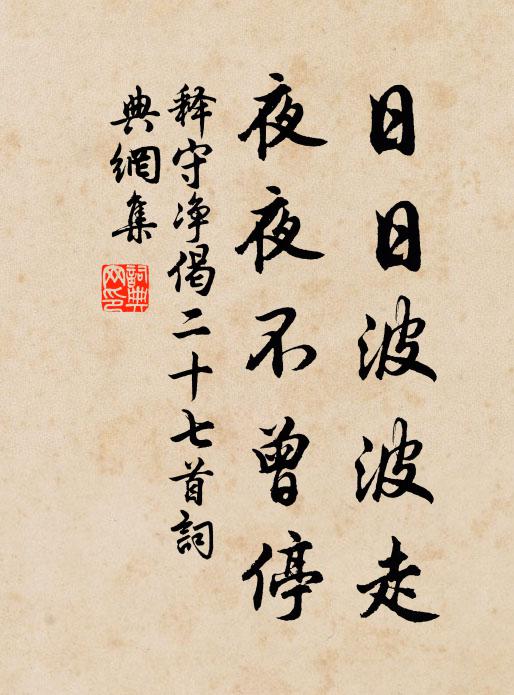 日日波波走
夜夜不曾停
释守净偈二十七首詞
典網集
詞典
网印